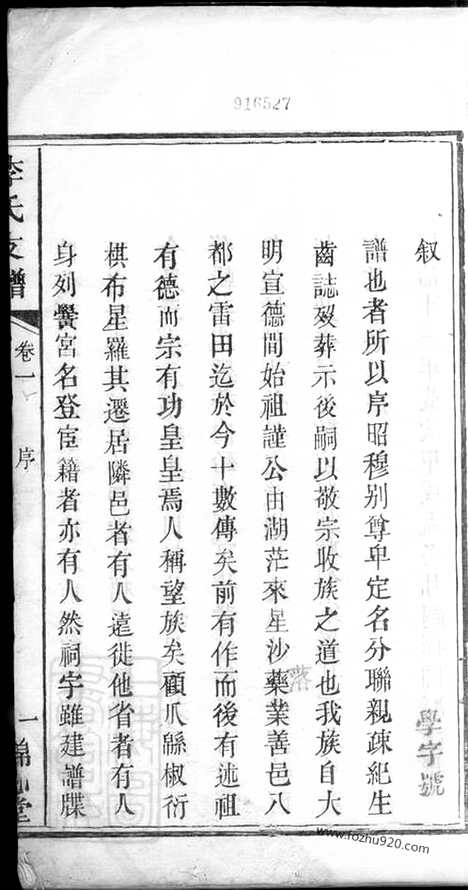 916527
叙
譜也者所以序昭穆别尊卑定名分聯親疎紀生
齒誌殁葬示後嗣以敬宗收族之道也我族自大
明宣德間始祖謹公由湖茫來星沙藥業善邑八
都之雷田迄於今十數傳矣前有作而後有述祖
有德而宗有功皇皇焉人稱望族矣顧瓜緜椒衍
棋布星羅其遷居隣邑者有人遠徙他省者有人
身列黌宮名登宦籍者亦有人然祠宇雖建譜牒
李氏支譜
卷一
序
一
堂
學字號
www.fozhu920.com